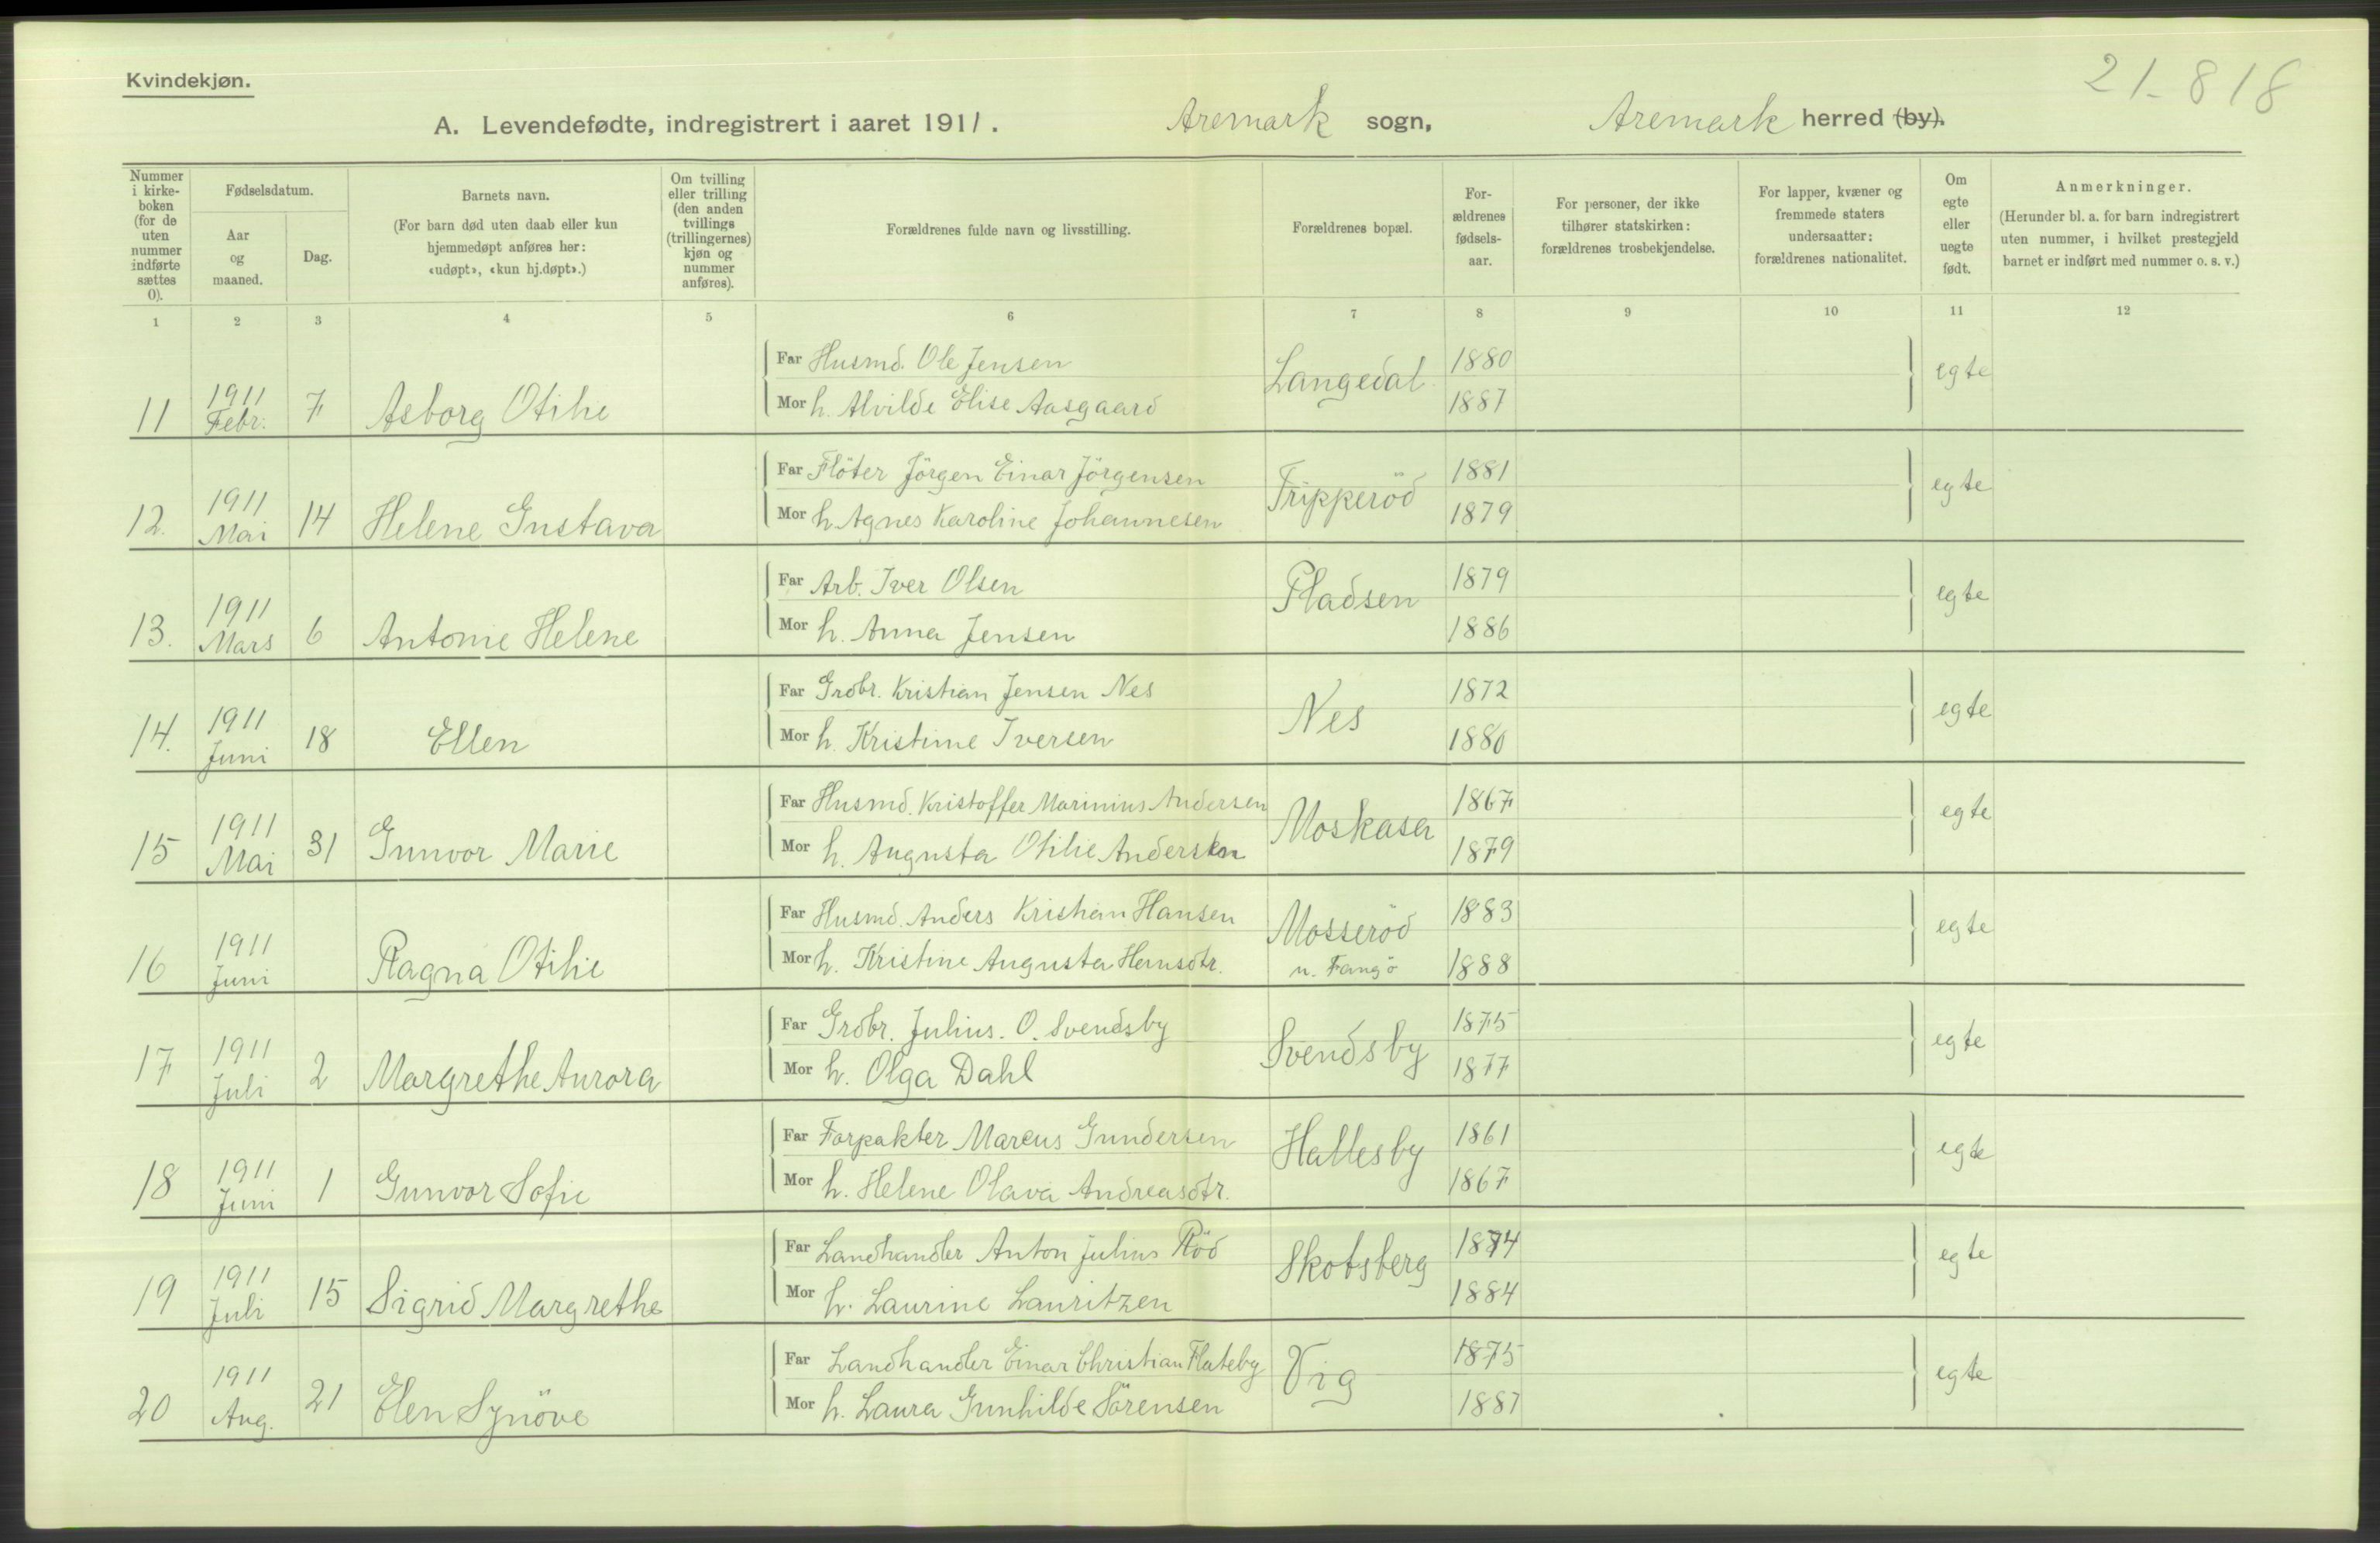 21-818
Kvindekjøn.
A. Levendefødte, indregistrert i aaret 1911. Aremark sogn, Aremark herred (by).
Nummer i kirke-boken (for de uten nummer indførte sættes 0).
Fødselsdatum.
Aar og maaned.
Dag.
Barnets navn.
(For barn død uten daab eller kun
hjemmedøpt anføres her:
«udøpt», «kun hj.døpt».)
Om tvilling
eller trilling
(den anden
tvillings
(trillingernes)
kjøn og
nummer
anføres).
Forældrenes fulde navn og livsstilling.
Forældrenes bopæl.
For-
ældrenes
fødsels-
aar.
For personer, der ikke
tilhører statskirken:
forældrenes trosbekjendelse.
For lapper, kvæner og
fremmede staters
undersaatter:
forældrenes nationalitet.
Om
egte
eller
uegte
født.
Anmerkninger.
(Herunder bl. a. for barn indregistrert
uten nummer, i hvilket prestegjeld
barnet er indført med nummer o. s. v.)
1 2 3 4 5 6 7 8 9 10 11 12
Far Husmd. Ole Jensen Langedal 1880 egte
11 1911 Febr. 7 Asborg Otilie Mor h. Alvilde Elise Aasgaard 1887
Far Flöter Jörgen Einar Jörgensen Tripperöd 1881 egte
12. 1911 Mai 14 Helene Gustava Mor h. Agnes Karoline Johannesen 1879
Far Arb. Iver Olsen Pladsen 1879 egte
13. 1911 Mars 6 Antonie Helene Mor h. Anna Jensen 1886
Far Grdbr. Kristian Jensen Nes Nes 1872 egte
14. 1911 Juni 18 Ellen Mor h. Kristine Iversen 1880
Far Husmd. Kristoffer Marinius Andersen Moskasa 1867 egte
15 1911 Mai 31 Gunvor Marie Mor h. Augusta Otilie Andersen 1879
Far Husmd. Anders Kristian Hansen Mosseröd 1883 egte
16 1911 Juni Ragna Otilie Mor h. Kristine Augusta Hansdtr. u. Fangö 1888
Far Grdbr. Julius. O. Svendsby Svendsby 1875 egte
17 1911 Juli 2 Margrethe Aurora Mor h. Olga Dahl 1877
Far Forpakter Marcus Gundersen Hallesby 1861 egte
18 1911 Juni 1 Gunvor Sofie Mor h. Helene Olava Andreasdtr. 1867
Far Landhandler Anton Julius Röd Skotsberg 1874 egte
19 1911 Juli 15 Sigrid Margrethe Mor h. Laurine Lauritzen 1884
Far Landhandler Einar Christian Fluteby Vig 1875 egte
20 1911 Aug. 21 Elen Synöve Mor h. Laura Gunhilde Sörensen 1887